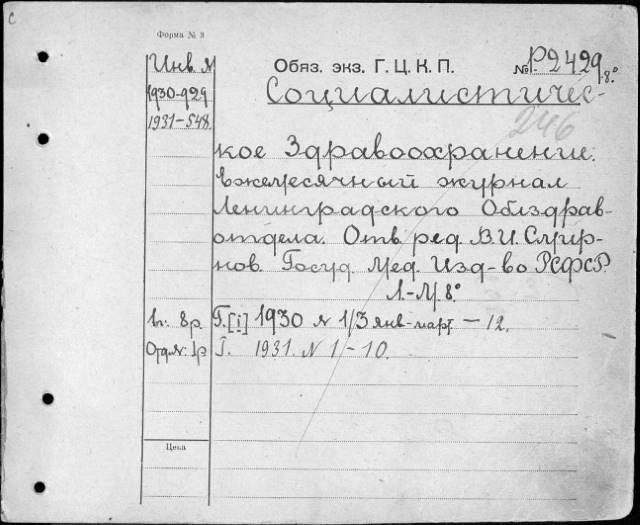 с
Форма № 3
Инв. №
Обяз. экз. Г. Ц. К. П.
№ P2429 8.°
1930-929
Социалистичес-
1931-548
246
кое Здравоохранение.
Ежемесячный журнал
Ленинградского Облздрав-
отдела. Отв. ред. В. И. Смир-
нов. Госуд. Мед. Изд-во РСФСР.
Л.-М. 8.°
в: 8 р. Г. [i] 1930 № 1/3 янв-март - 12.
Отд. №: 1 р Г. 1931. № 1-10.
Цена